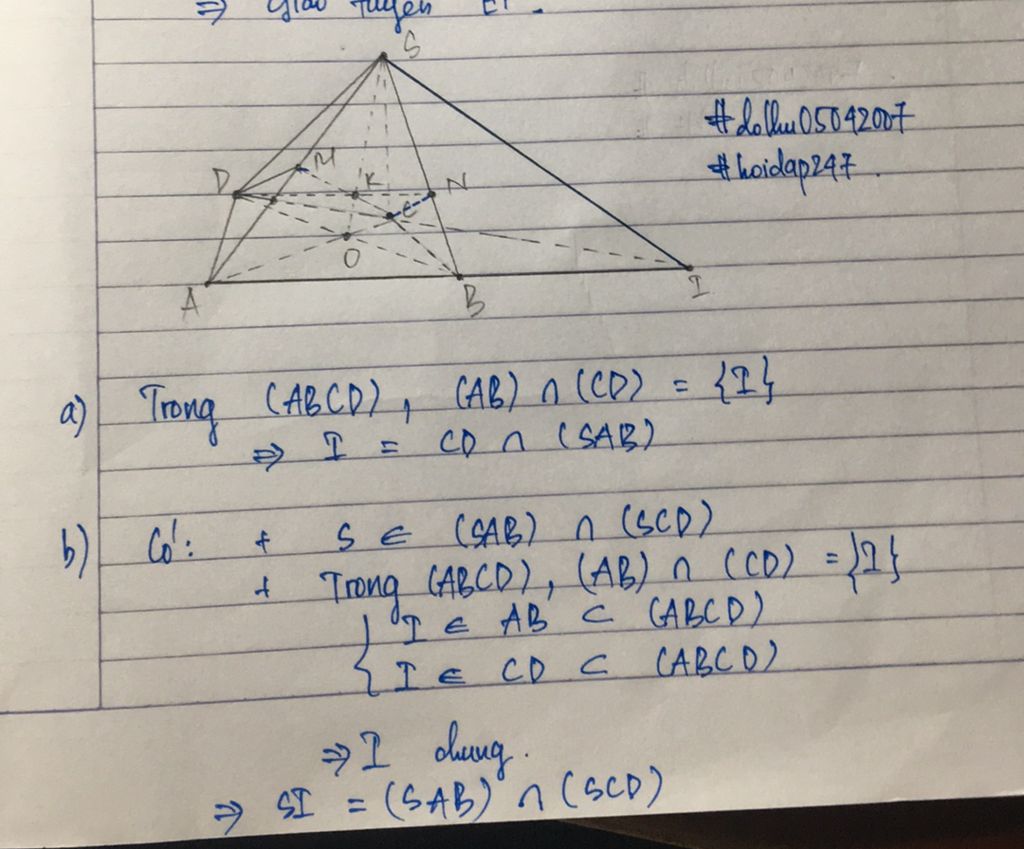 ⇒ Giao tuyến EF.
S
#dolhu05042007
#hoidap247.
D M K N
C
O
A B I
a) Trong (ABCD), (AB) ∩ (CD) = {I}
⇒ I = CD ∩ (SAB)
b) Có: + S ∈ (SAB) ∩ (SCD)
+ Trong (ABCD), (AB) ∩ (CD) = {I}
{ I ∈ AB ⊂ (ABCD)
I ∈ CD ⊂ (ABCD)
⇒ I chung.
⇒ SI = (SAB) ∩ (SCD)